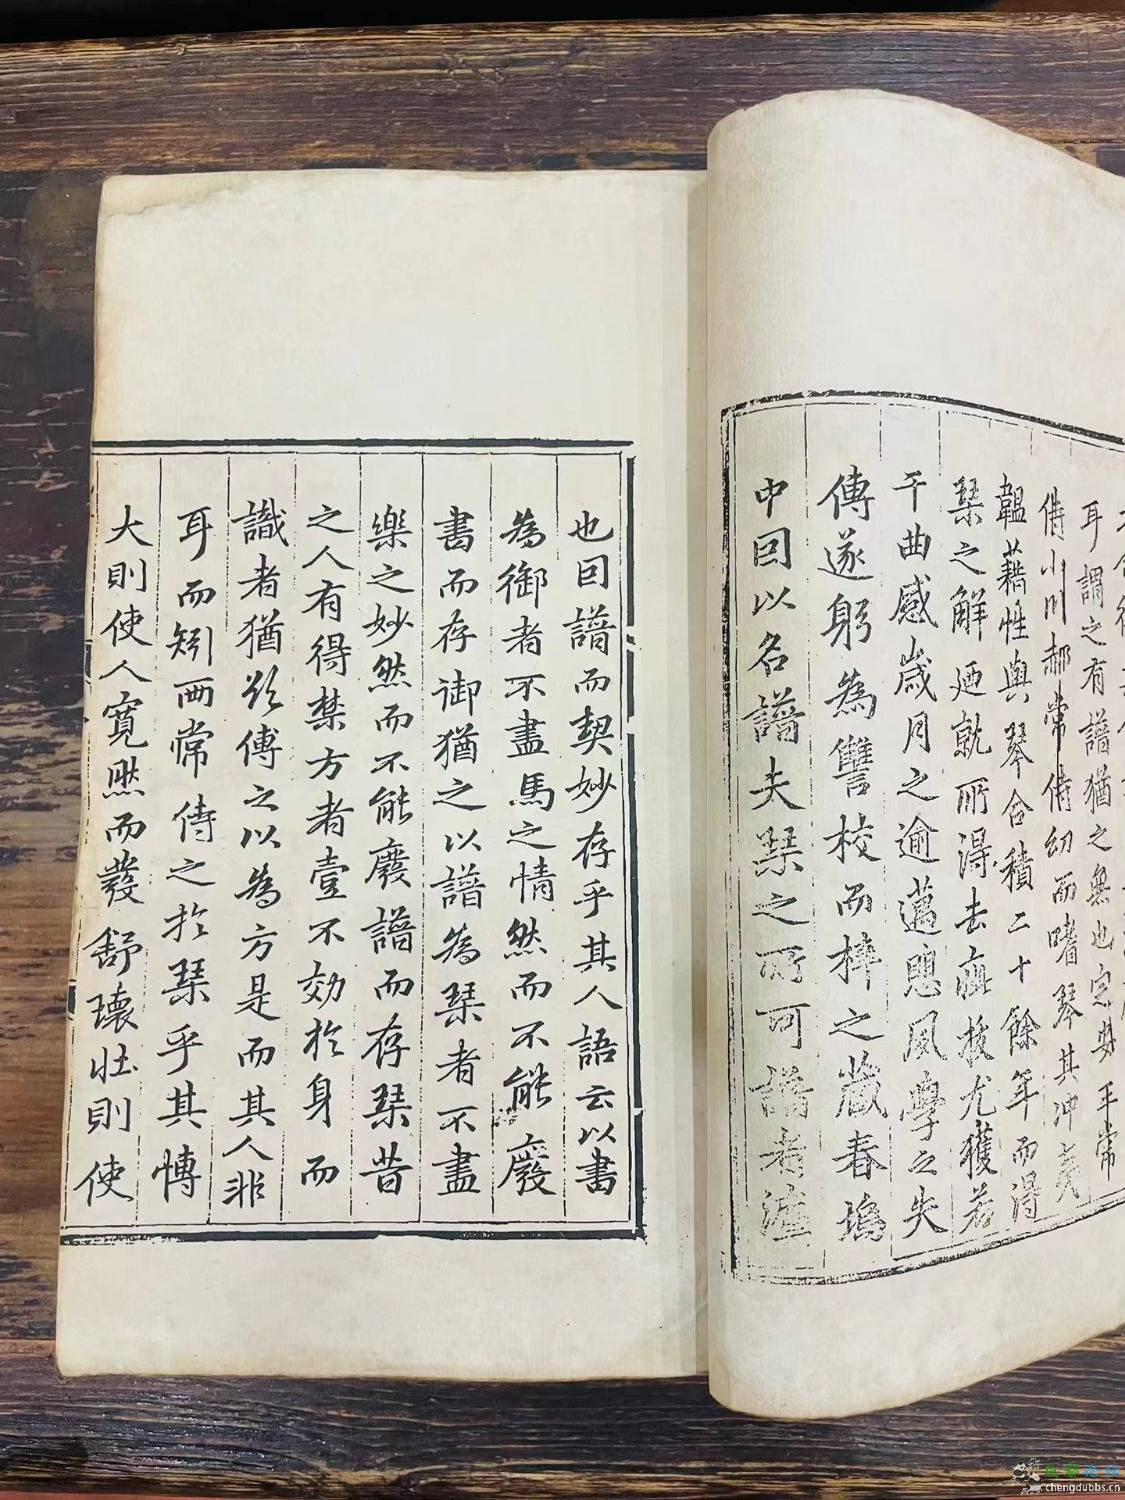 耳謂之有譜猶之無也字與平常
侍小川郝常侍幼而嗜琴其冲羙
韞藉性與琴合積二十餘年而得
琹之解廼就所得去疵撥尤獲若
干曲感歲月之逾邁愳風學之失
傳遂躬為讐校而梓之藏春塢
中因以名譜夫琹之所可譜者瀘
也因譜而契妙存乎其人語云以書
為御者不盡馬之情然而不能廢
書而存御猶之以譜為琹者不盡
樂之妙然而不能廢譜而存琹昔
之人有得禁方者壹不効於身而
識者猶欲傳之以為方是而其人非
耳而矧両常侍之於琹乎其慱
大則使人寬然而發舒瓌壯則使
chengdubbs.cn